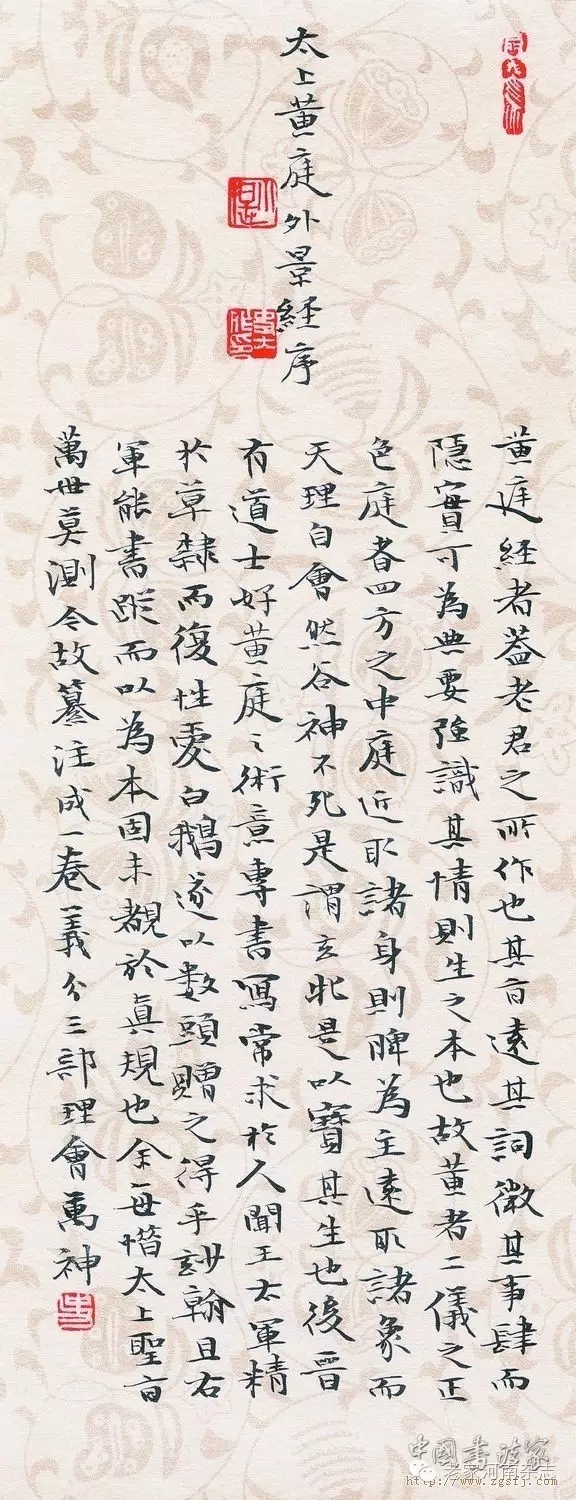 太上黄庭外景経序
黄庭経者蓋老君之所作也其旨遠其詞微其事肆而
隱實可為典要強識其情則生之本也故黄者二儀之正
色庭者四方之中庭近取諸身則脾為主遠取諸象而
天理自會然谷神不死是謂玄牝是以寶其生也後晉
有道士好黄庭之術意專書寫常求於人聞王右軍精
於草隸而復性愛白鵝遂以數頭贈之得乎妙翰且右
軍能書蹤而以為本固未覩於真規也余每惜太上聖旨
萬世莫測今故纂注成一卷義分三部理會萬神
中國書法家
老家河南杂志
http://www.zgsfj.com